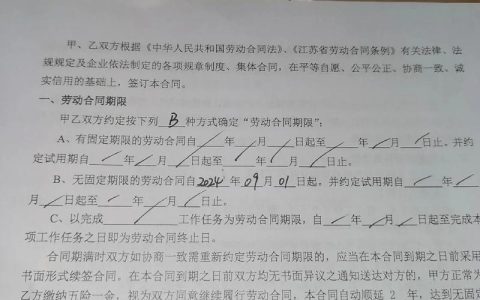 甲、乙双方根据《中华人民共和国劳动合同法》、《江苏省劳动合同条例》有关法律、法
规规定及企业依法制定的各项规章制度、集体合同，在平等自愿、公平公正、协商一致、诚
实信用的基础上，签订本合同。
一、劳动合同期限
甲乙双方约定按下列 B 种方式确定“劳动合同期限”：
A、有固定期限的劳动合同自 / 年 / 月 / 日起至 / 年 / 月 / 日止。并约
定试用期自 / 年 / 月 / 日起至 / 年 / 月 / 日止。
B、无固定期限的劳动合同自 2024 年 09 月 01 日起。并约定试用期自 / 年 /
月 / 日起至 / 年 / 月 / 日止。
C、以完成 / 工作任务为劳动合同期限，自 / 年 / 月 / 日起至完成本
项工作任务之日即为劳动合同终止日。
合同期满时双方如协商一致需重新约定劳动合同期限的，应当在本合同到期之日前采用
书面形式续签合同。在本合同到期之日前双方均无书面异议之通知送达对方的，甲方正常为
乙方缴纳五险一金，视为双方同意继续履行劳动合同，本合同自动顺延 2 年，达到无固定